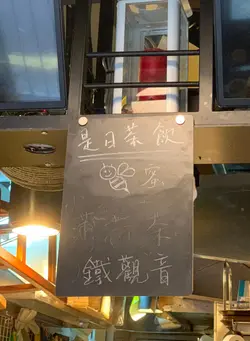 是日茶飲
蜜
茶
鐵觀音